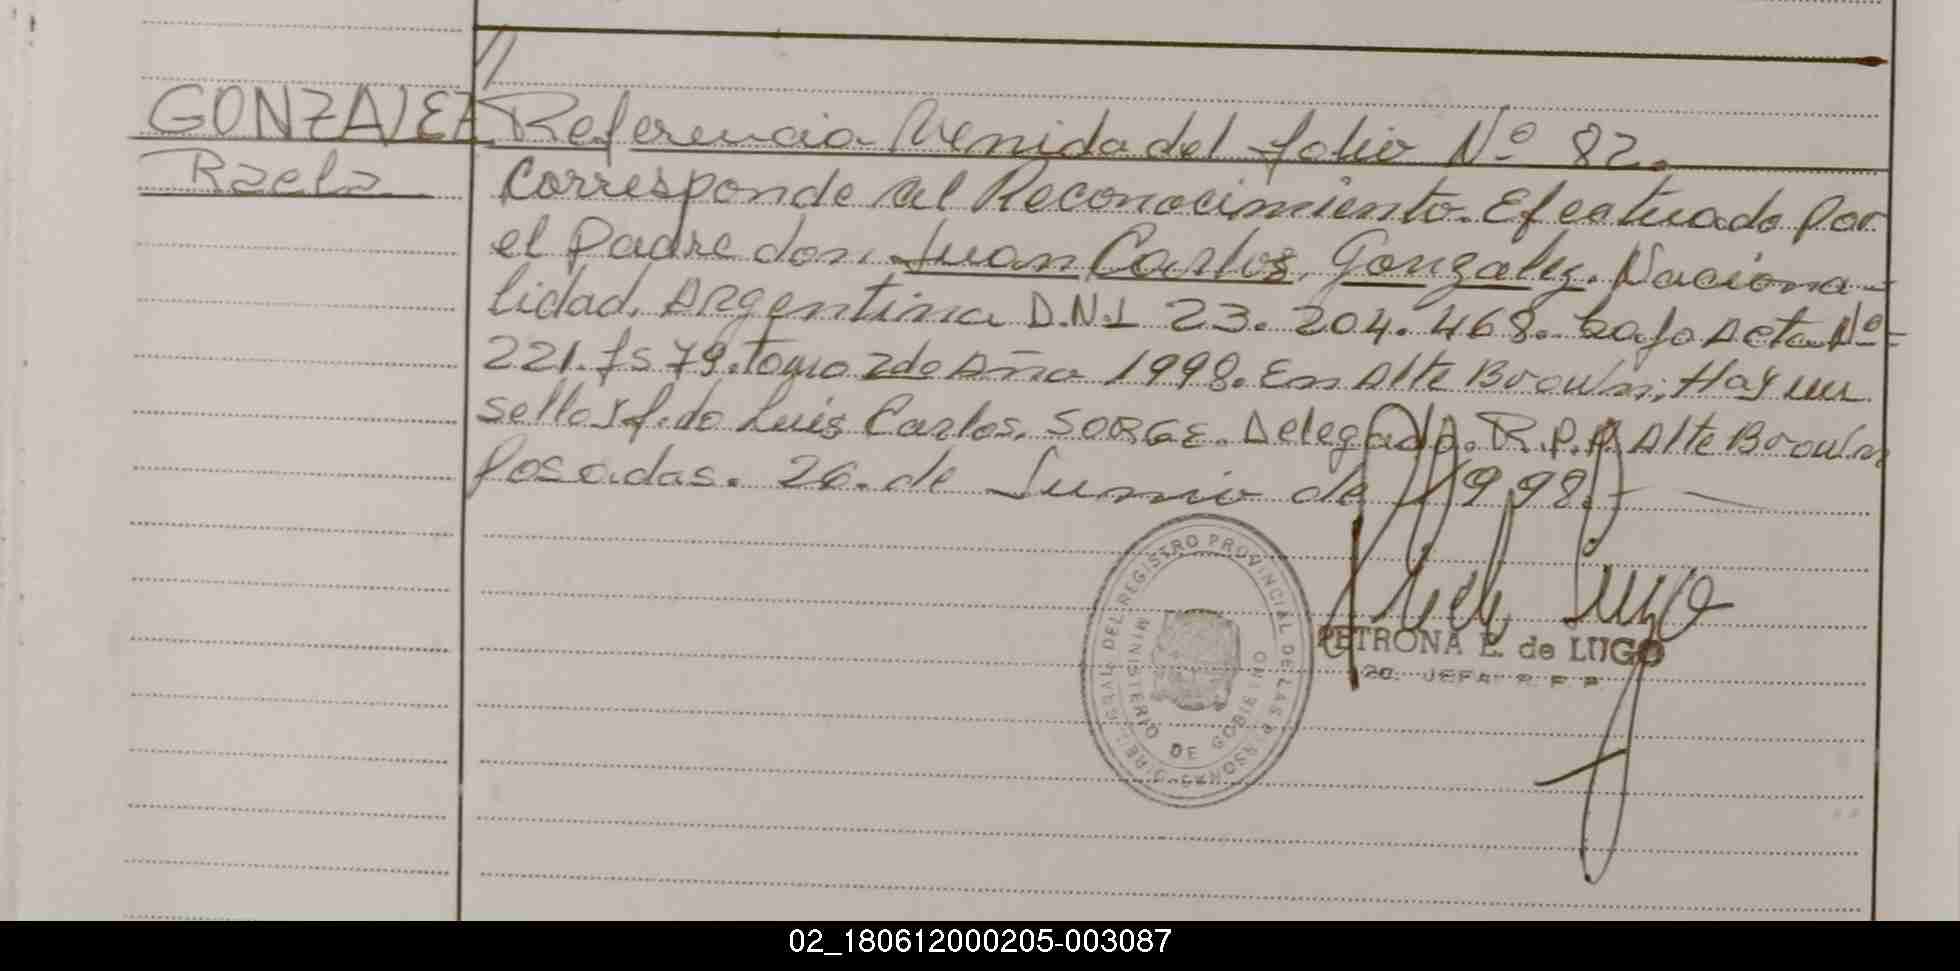 //
GONZALEZ Referencia Venida del folio Nº 82.
Raela Corresponde al Reconocimiento. Efectuado Por
el Padre don. Juan Carlos, Gonzalez. Naciona-
lidad. Argentina D.N.I 23.204.468. bajo Acta Nº
221. fs 79. Tomo 2do Año 1998. En Alte Brown; Hay un
sello y f.do Luis Carlos. SORGE. Delegado. R.P.P. Alte Brown
Posadas. 26. de Junio de 1998.-
DIRECCION GRAL DEL REGISTRO PROVINCIAL DE LAS PERSONAS
MINISTERIO DE GOBIERNO
PETRONA E. de LUGO
2C. JEFA R. P. P.
02_180612000205-003087